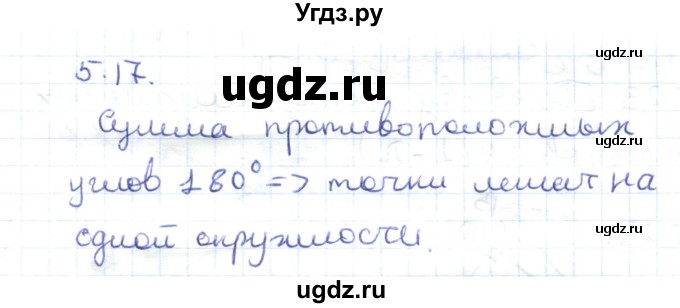 Угдз.ру
5.17.
ugdz.ru
ugdz.ru
Сумма противоположных
ugdz.ru
углов 180° => точки лежат на
ugdz.ru
одной окружности.
ugdz.ru
ugdz.ru